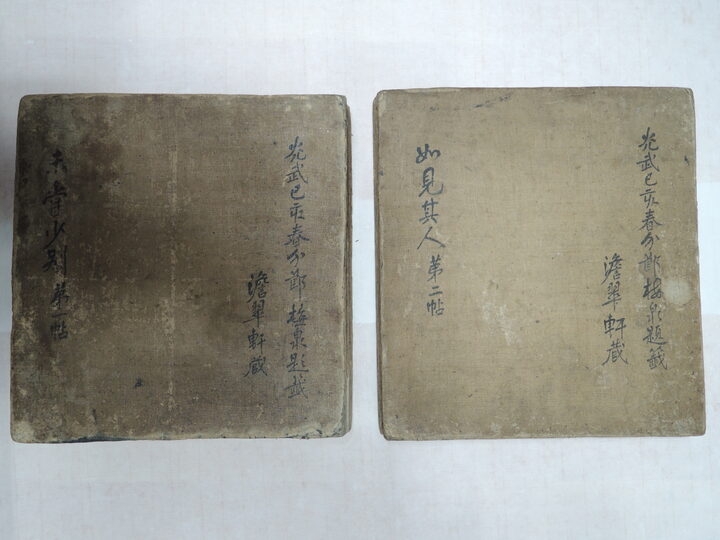 光武己亥春分鄭梅泉題籤
澹翠軒藏
未嘗少別 第一帖
光武己亥春分鄭梅泉題籤
澹翠軒藏
如見其人 第二帖